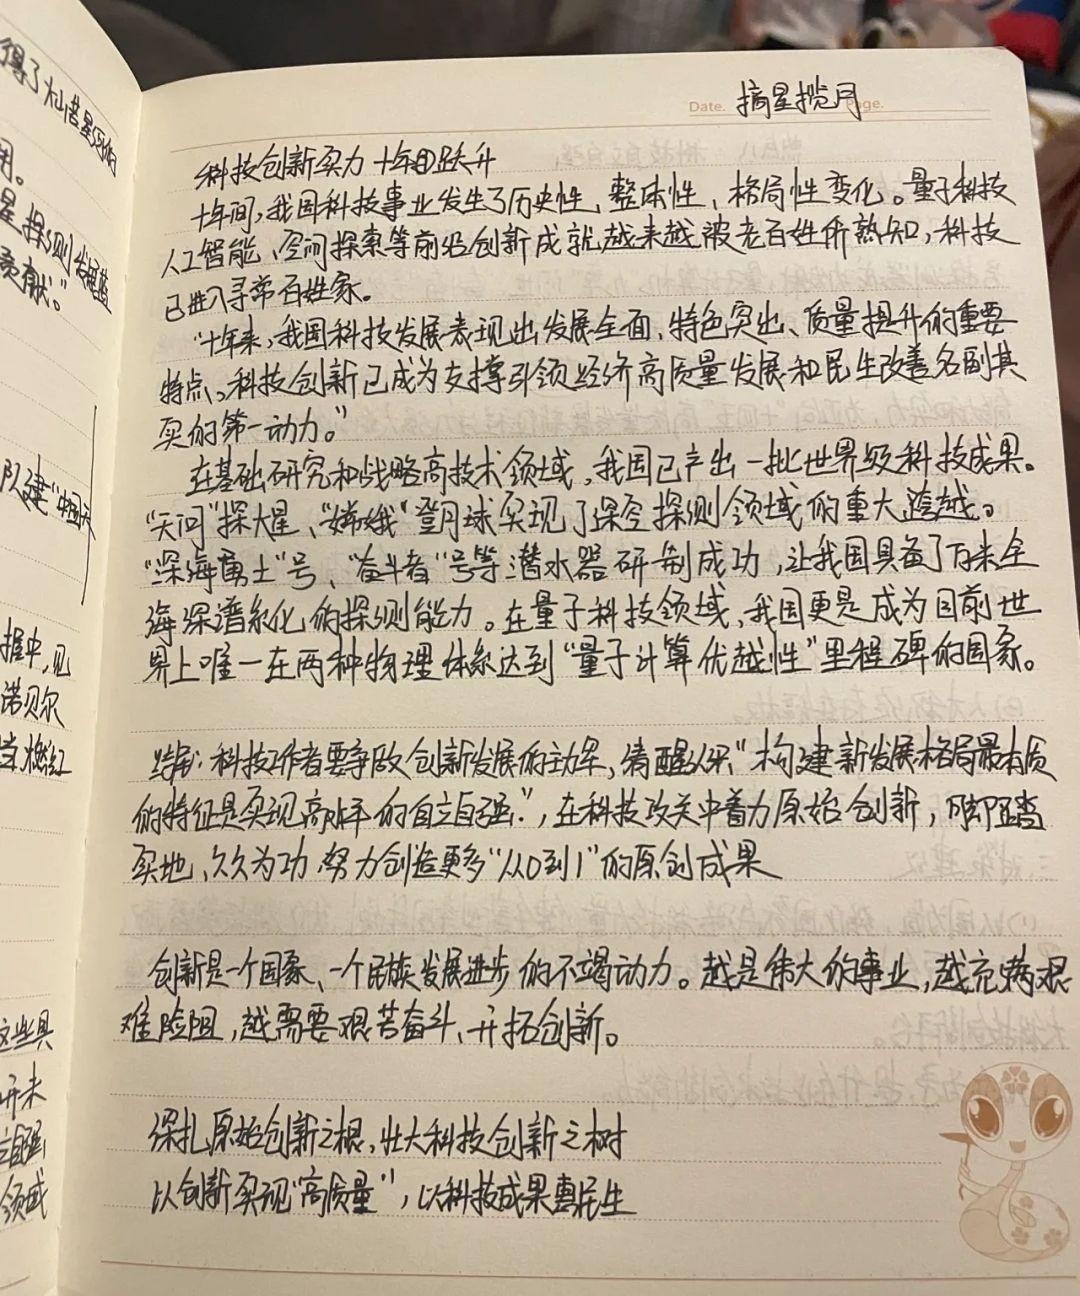 得了灿若星河的
用。
星探测发掘蓝
贡献。"
队建"中国天
握中,见
诺贝尔
这些具
开未
立自强
领域
Date. 摘星揽月 Page.
科技创新实力 十年回跃升
十年间,我国科技事业发生了历史性、整体性、格局性变化。量子科技
人工智能、空间探索等前沿创新成就越来越被老百姓所熟知,科技
已进入寻常百姓家。
"十年来,我国科技发展表现出发展全面、特色突出、质量提升的重要
特点。科技创新已成为支撑引领经济高质量发展和民生改善名副其
实的第一动力。"
在基础研究和战略高技术领域,我国已产出一批世界级科技成果。
"天问"探火星、"嫦娥"登月球实现了深空探测领域的重大跨越。
"深海勇士"号、"奋斗者"号等潜水器研制成功,让我国具备了万米全
海深谱系化的探测能力。在量子科技领域,我国更是成为目前世
界上唯一在两种物理体系达到"量子计算优越性"里程碑的国家。
结尾:科技工作者要争做创新发展的主力军,清醒认识"构建新发展格局最本质
的特征是实现高水平的自立自强",在科技攻关中着力原始创新,脚踏
实地、久久为功,努力创造更多"从0到1"的原创成果
创新是一个国家、一个民族发展进步的不竭动力。越是伟大的事业,越充满艰
难险阻,越需要艰苦奋斗、开拓创新。
深扎原始创新之根,壮大科技创新之树
以创新实现"高质量",以科技成果惠民生